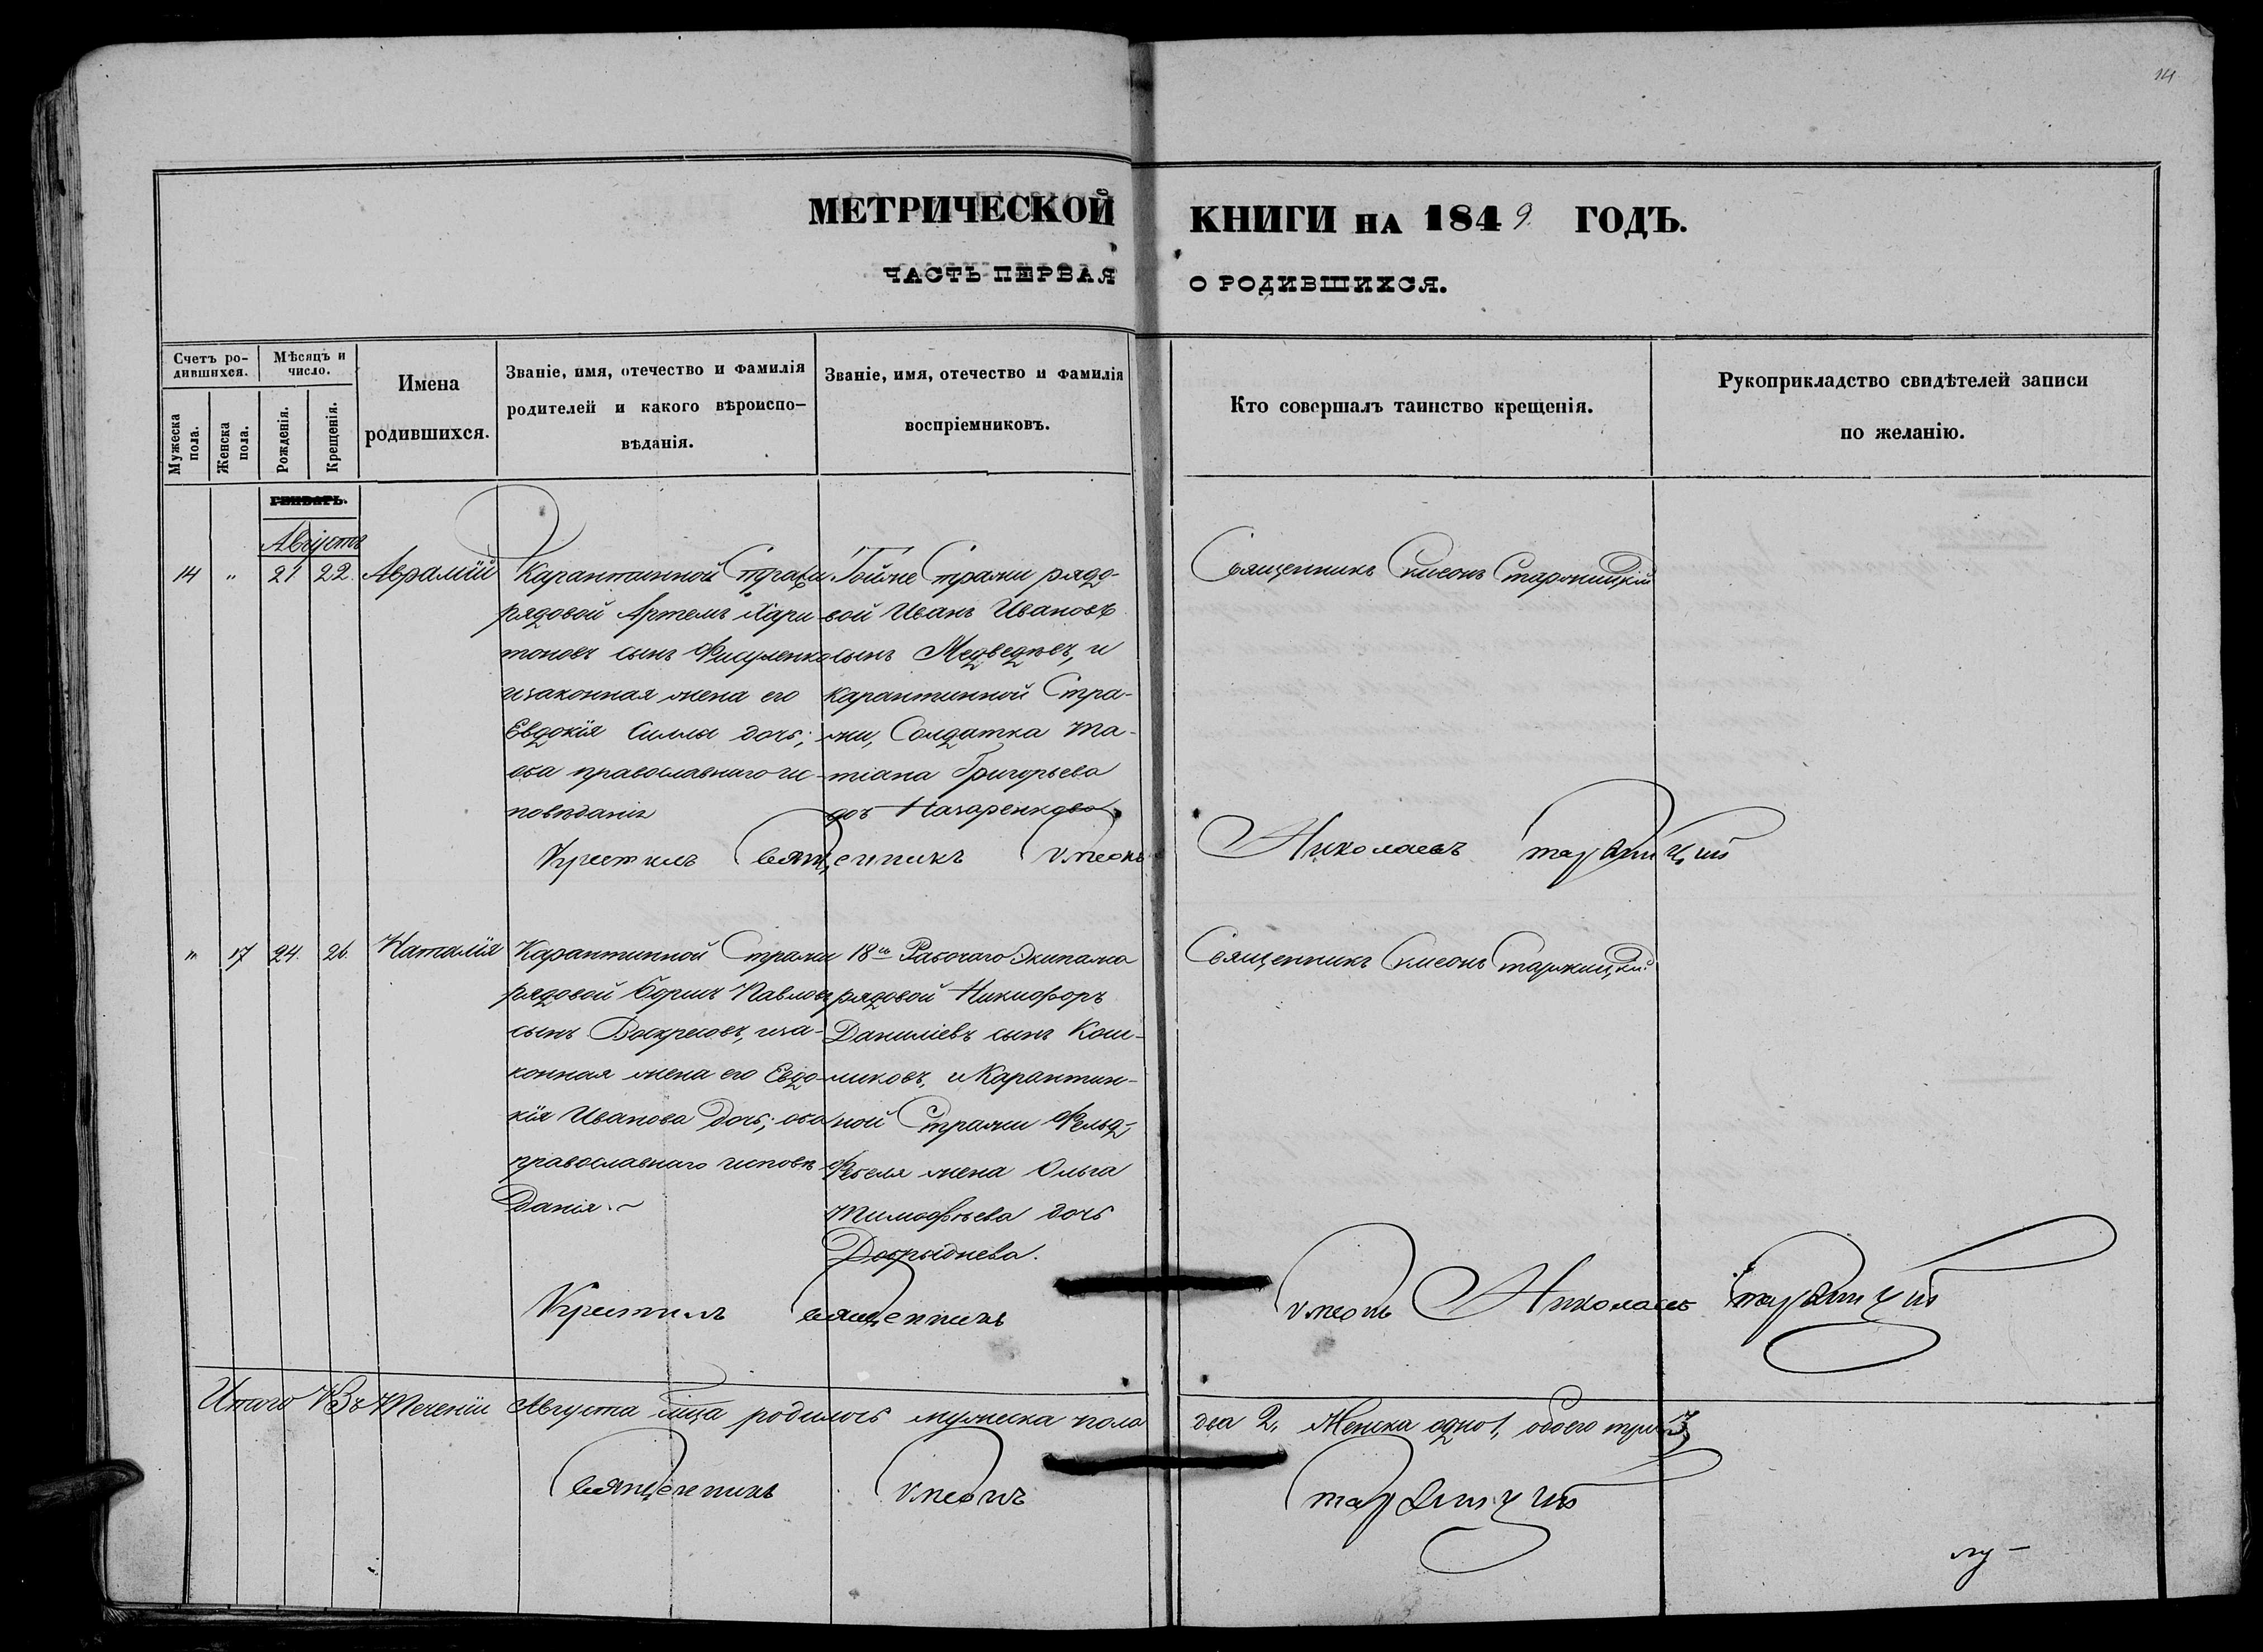 14
МЕТРИЧЕСКОЙ КНИГИ НА 1849. ГОДЪ.
ЧАСТЬ ПЕРВАЯ О РОДИВШИХСЯ.
Счетъ ро-
дившихся.
Мужеска пола.
Женска пола.
Мѣсяцъ и
число.
Рожденія.
Крещенія.
Имена
родившихся.
Званіе, имя, отечество и фамилія
родителей и какого вѣроиспо-
вѣданія.
Званіе, имя, отечество и фамилія
воспріемниковъ.
Кто совершалъ таинство крещенія.
Рукоприкладство свидѣтелей записи
по желанію.
ГЕНВАРЬ.
Августъ
14 " 21 22. Аврамій
Карантинной Стражи
рядовой Артемъ Хари-
тоновъ сынъ
изаконная жена его
Евдокія Силы дочь;
оба православнаго ис-
повѣданія
Тойже Стражи рядо-
вой Иванъ Ивановъ
сынъ Медведевъ, и
карантинной Стра-
жи, Солдатка Та-
тіана Григорьева
Назаренкова
Священникъ Симеонъ
Крестилъ Священникъ Симеонъ Николаевъ
" 17 24. 26. Наталія
Карантинной Стражи
рядовой Борисъ Павловъ
сынъ иза-
конная жена его Евдо-
кія Иванова дочь; оба
православнаго исповѣ-
данія.
18го Рабочаго Экипажа
рядовой Никифоръ
Даниліевъ сынъ Кош-
ликовъ, и Карантин-
ной Стражи Фельд-
фебеля жена Ольга
Тимофѣева дочь
Добрыднева.
Священникъ Симеонъ
Крестилъ Священникъ Симеонъ Николаевъ
Итого Въ Теченіи Августа м͠ца родилось мужеска пола два 2, Женска одно 1, обоего три 3
Священникъ Симеонъ